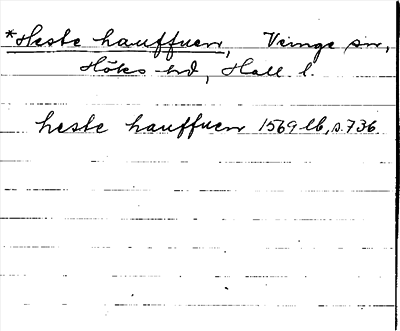 *Heste hauffuen, Veinge sn,
Höks hd, Hall. l.
heste hauffuen 1569 lb, s. 736